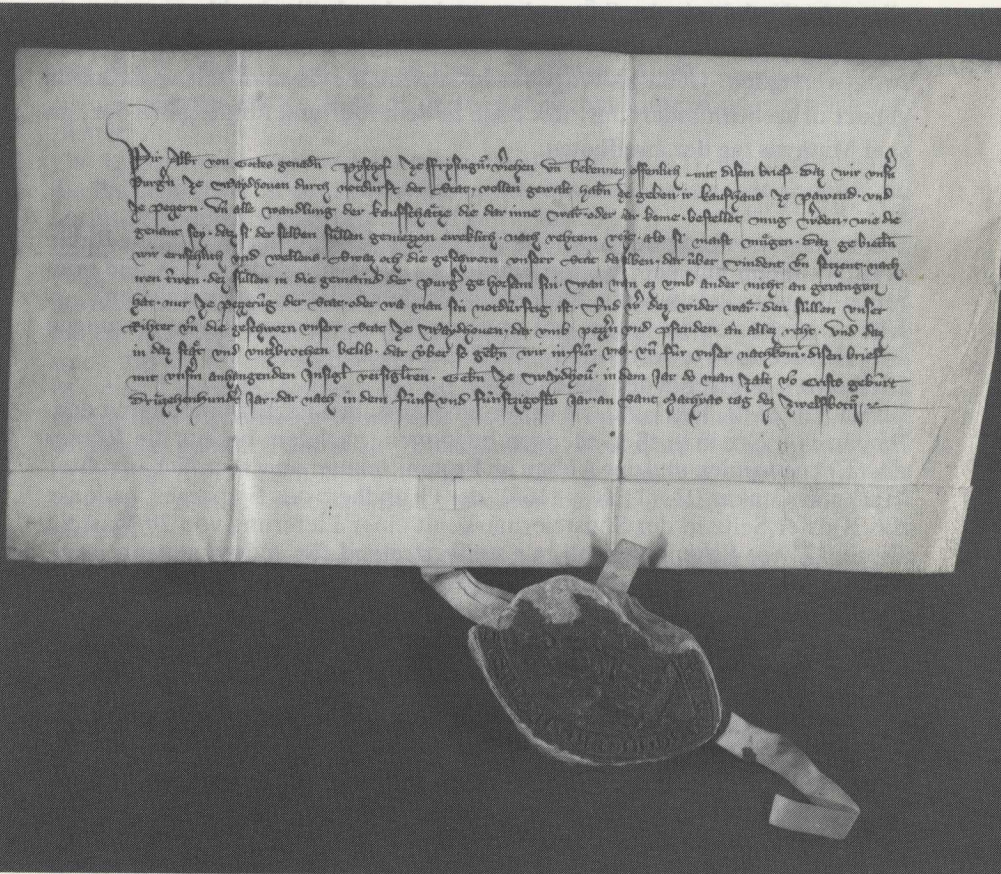 Wir Albr von Gotes genadn Pyschof ze ffrysingn veriehen vn bekennen offenlich mit disem brief daz wir unsn
purgn ze Waydhouen durch notdurft der Stat vollen gewalt habn ze geben ir kaufhaus ze pawend vnd
ze pezzern vn alle wandlung der kauffschatze die dar inne war oder dar kome bestellet mug werden wie die
genant sey daz si der selben sullen geniezzen eweklich nach rehtem als si maist mugen daz gebietn
wir ernstlich vnd wellens Swaz och die gesworn vnser Stat daselben dar uber vindent vn setzent nach
iren trwen dez sullen in die gemaind der purger gehorsam sin wan von ez vmb ander nicht an gevangen
hat nur ze pezzerung der Stat oder wa man sin notdurftig ist Vnd wer dez wider war den sullen vnser
Rihter vn die gesworn vnser Stat ze Waydhouen dar vmb pezzern vnd pfenden an allez reht Vnd daz
in daz stet vnd vntzbrochen belib dar vber so gebn wir in fur vns vn fur vnser nachkom disen brief
mit vnserm anhangenden Insigl versigliten Gebn ze Waydhouen in dem Jar do man zalt von Cristes geburt
Drewzehenhundert Jar dar nach in dem funf vnd funftzigosten Jar an sant Mathyas tag dez zwelfboten